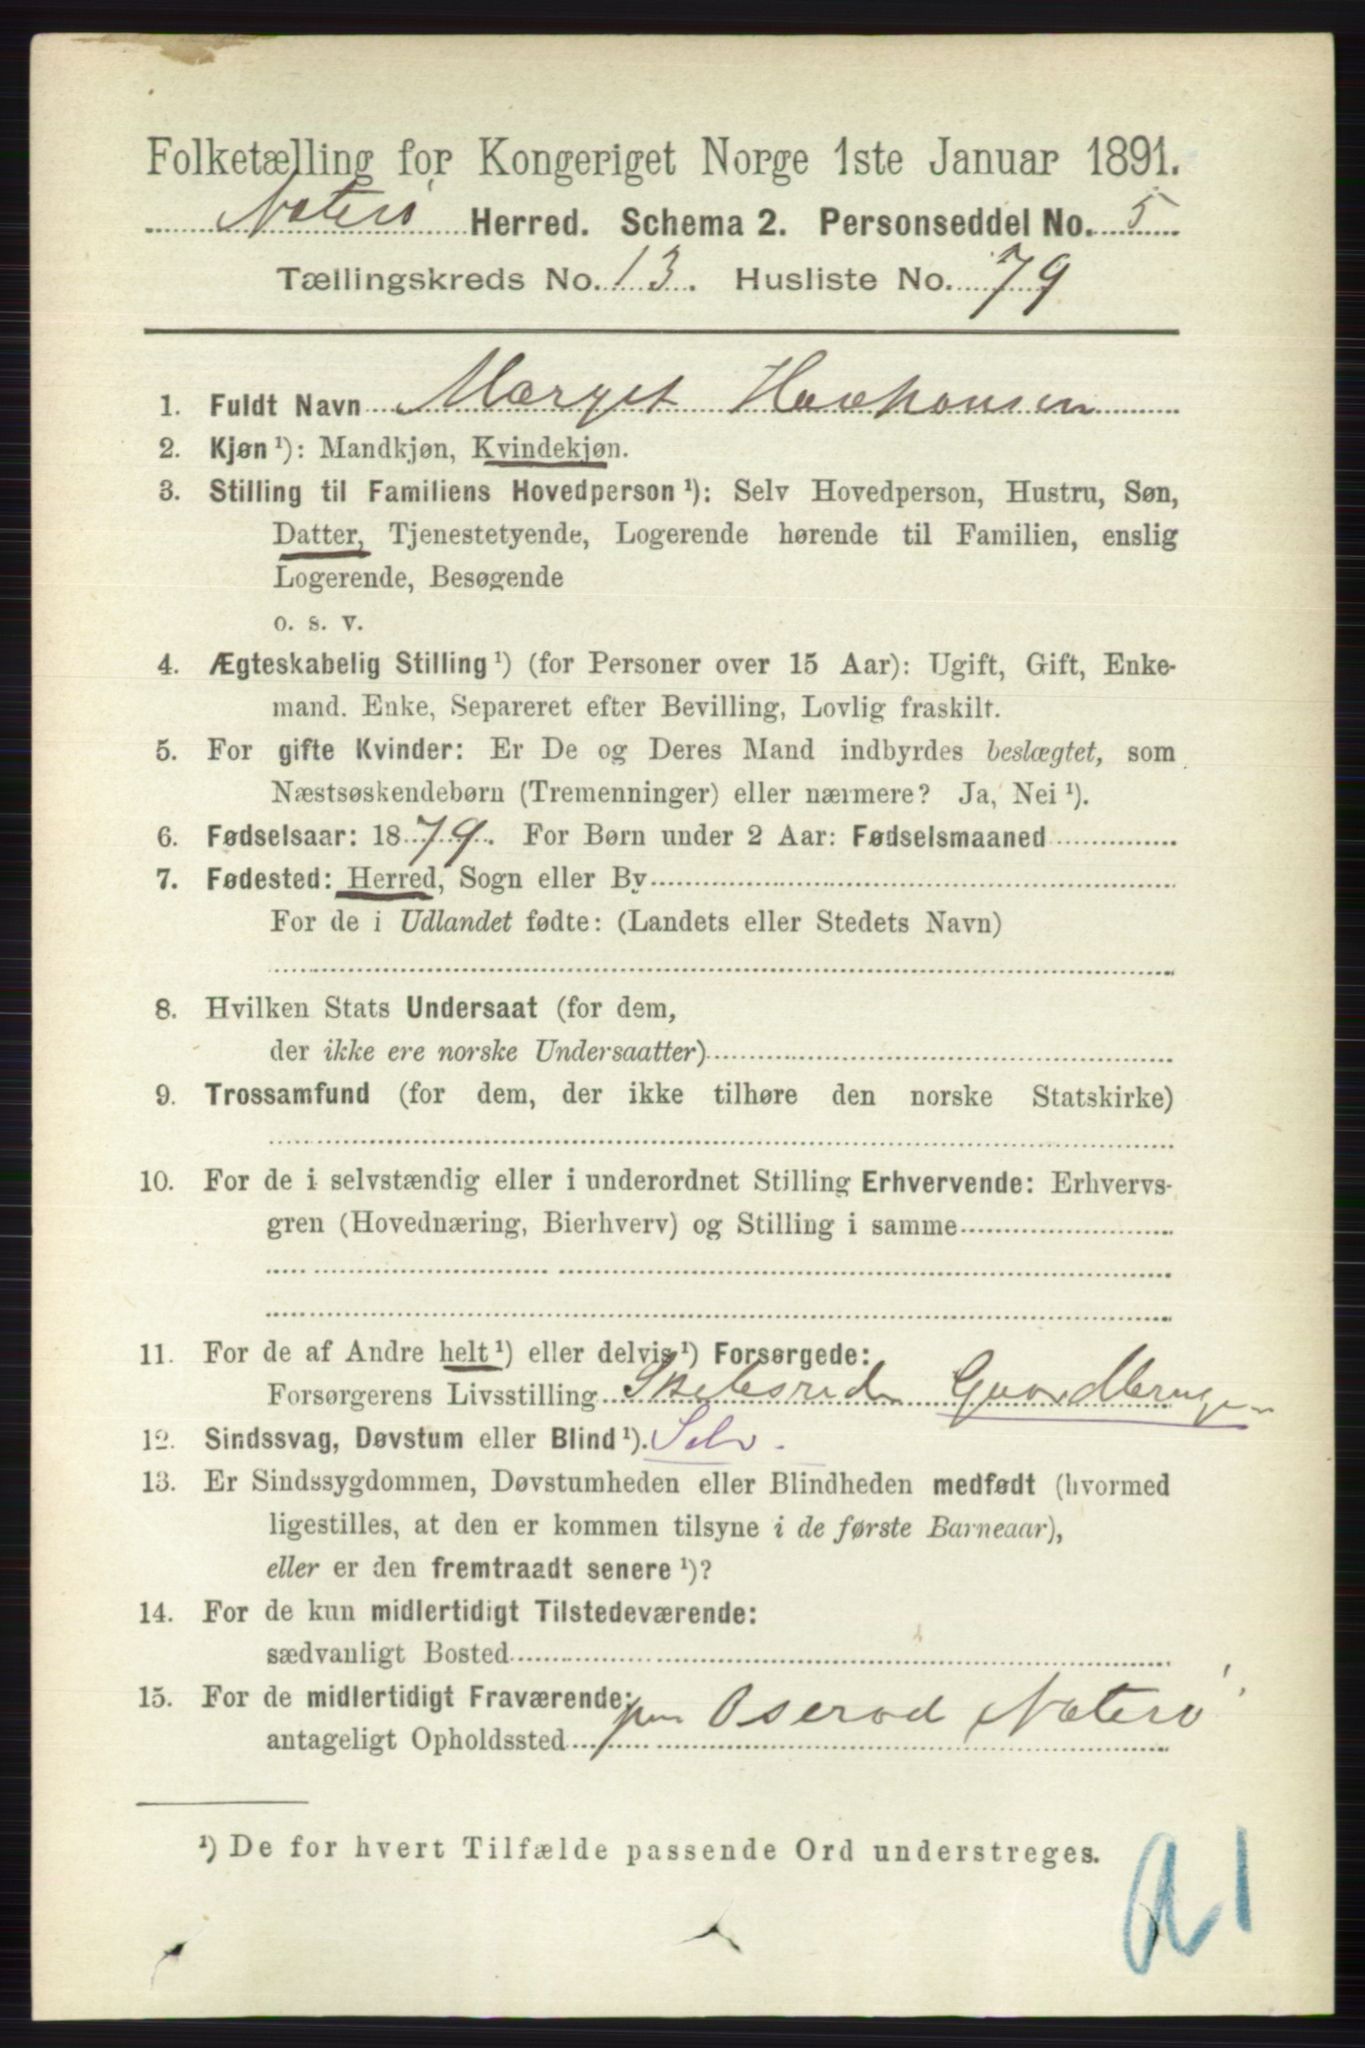 Folketælling for Kongeriget Norge 1ste Januar 1891.
Noterø Herred. Schema 2. Personseddel No. 5
Tællingskreds No. 13. Husliste No. 79
1. Fuldt Navn Marget
2. Kjøn ¹): Mandkjøn, Kvindekjøn.
3. Stilling til Familiens Hovedperson ¹): Selv Hovedperson, Hustru, Søn,
Datter, Tjenestetyende, Logerende hørende til Familien, enslig
Logerende, Besøgende
o. s. v.
4. Ægteskabelig Stilling ¹) (for Personer over 15 Aar): Ugift, Gift, Enke-
mand. Enke, Separeret efter Bevilling, Lovlig fraskilt.
5. For gifte Kvinder: Er De og Deres Mand indbyrdes beslægtet, som
Næstsøskendebørn (Tremenninger) eller nærmere? Ja, Nei ¹).
6. Fødselsaar: 1879. For Børn under 2 Aar: Fødselsmaaned
7. Fødested: Herred, Sogn eller By
For de i Udlandet fødte: (Landets eller Stedets Navn)
8. Hvilken Stats Undersaat (for dem,
der ikke ere norske Undersaatter)
9. Trossamfund (for dem, der ikke tilhøre den norske Statskirke)
10. For de i selvstændig eller i underordnet Stilling Erhvervende: Erhvervs-
gren (Hovednæring, Bierhverv) og Stilling i samme
11. For de af Andre helt ¹) eller delvis ¹) Forsørgede:
Forsørgerens Livsstilling Skibsreder Gaardbruger
12. Sindssvag, Døvstum eller Blind ¹). Selv.
13. Er Sindssygdommen, Døvstumheden eller Blindheden medfødt (hvormed
ligestilles, at den er kommen tilsyne i de første Barneaar),
eller er den fremtraadt senere ¹)?
14. For de kun midlertidigt Tilstedeværende:
sædvanligt Bosted
15. For de midlertidigt Fraværende:
antageligt Opholdssted paa Oserød Noterø
¹) De for hvert Tilfælde passende Ord understreges.